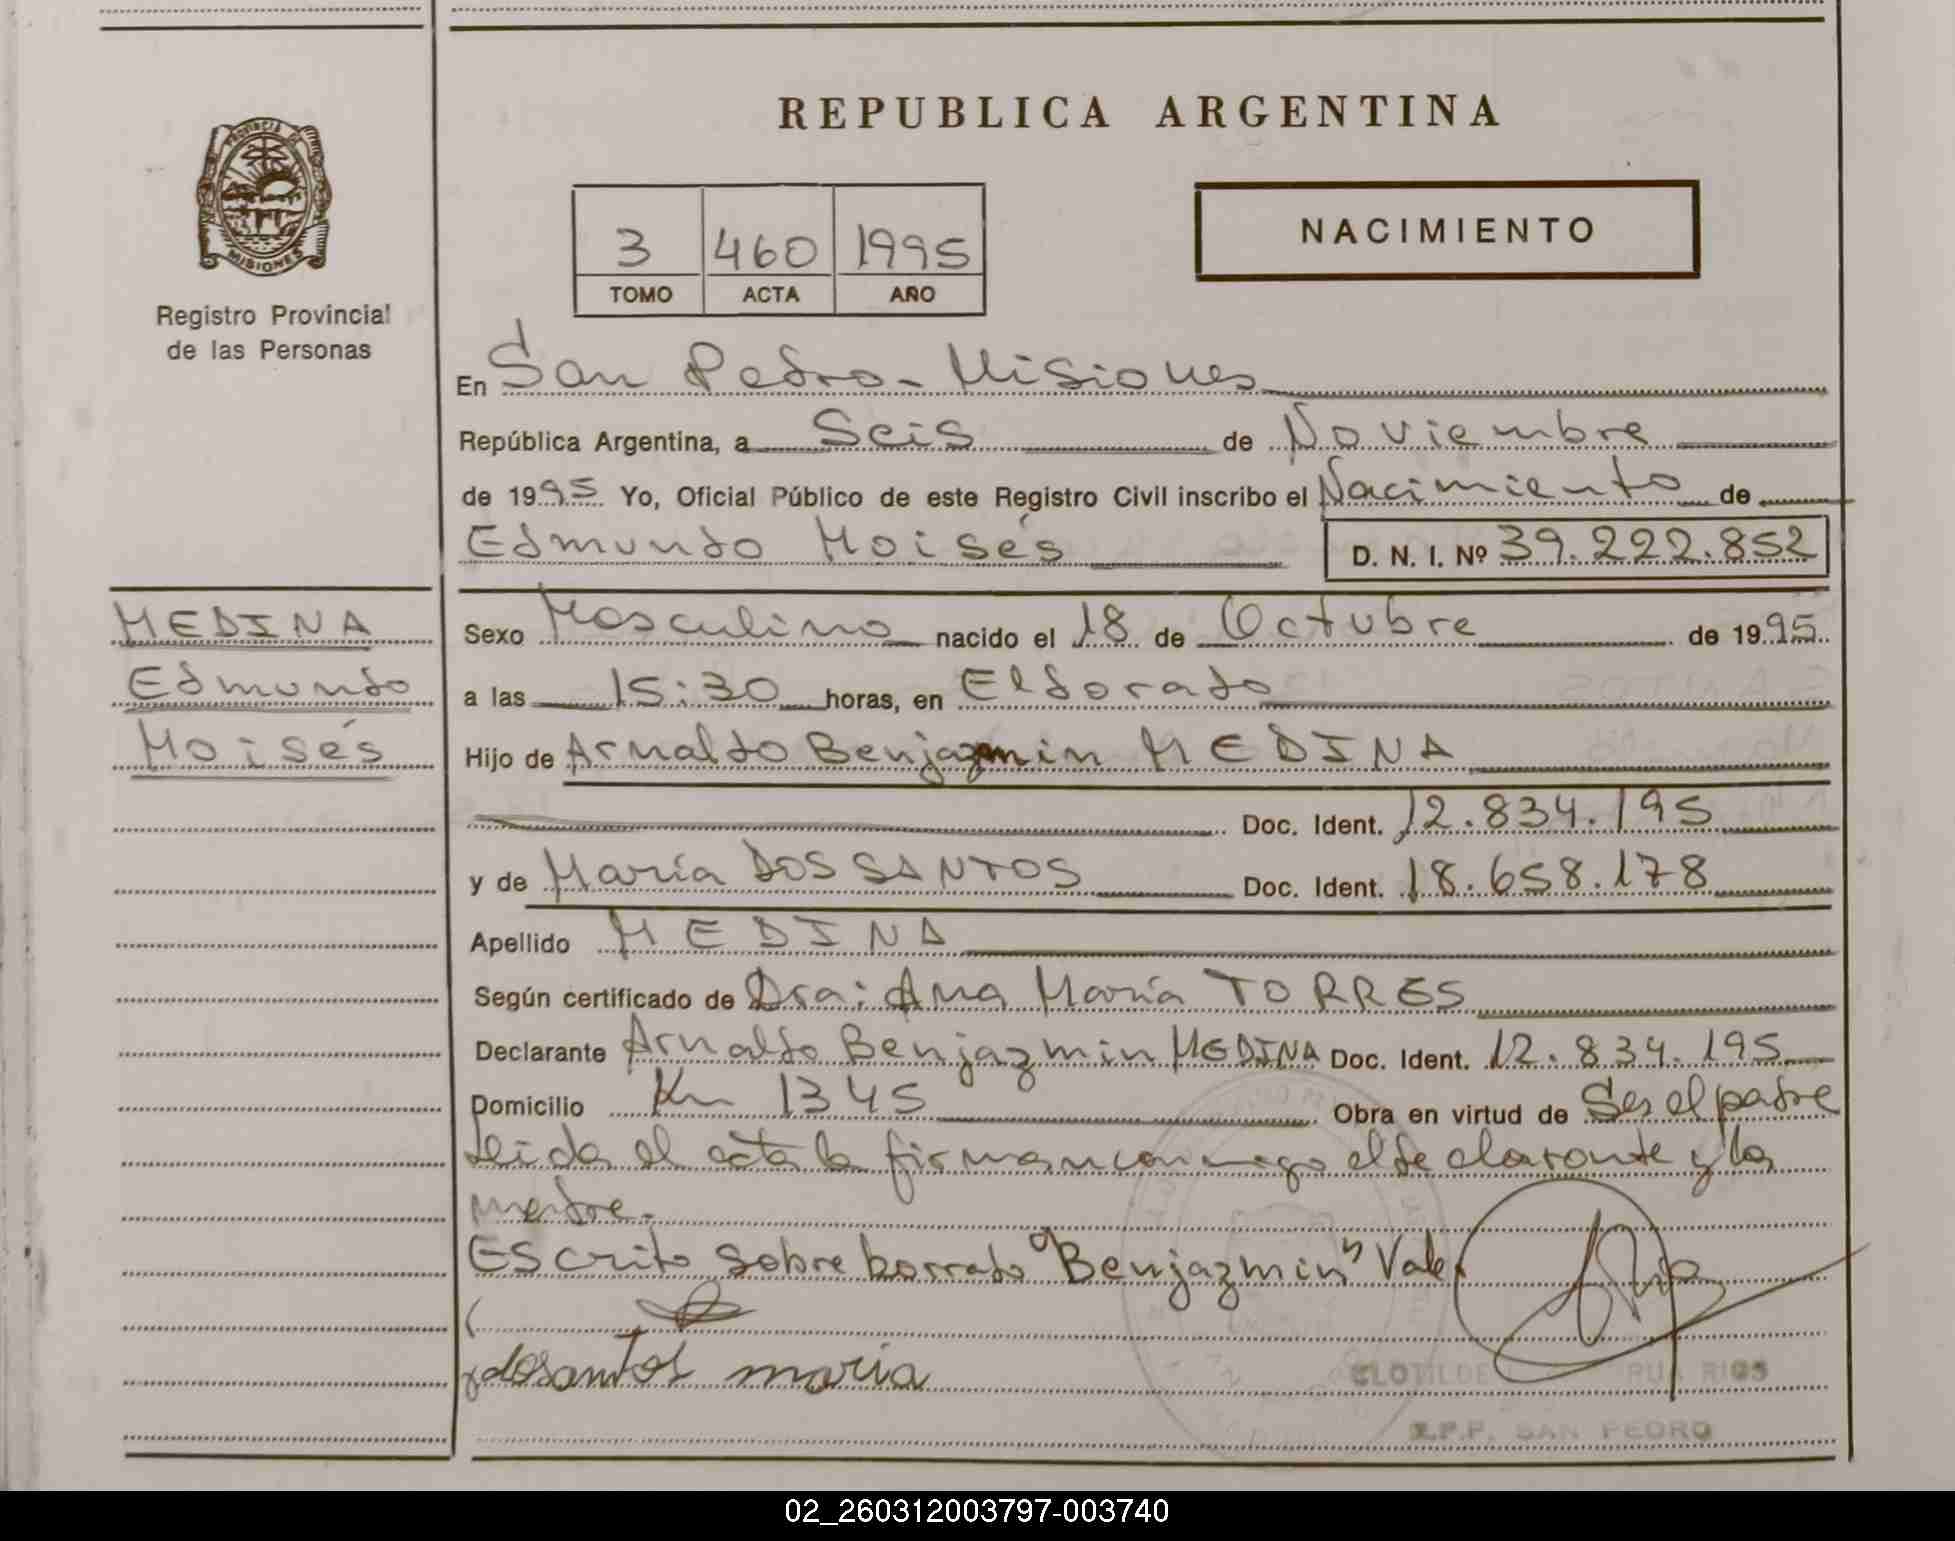 REPUBLICA ARGENTINA
PROVINCIA DE
MISIONES
Registro Provincial
de las Personas
3 460 1995
TOMO ACTA AÑO
NACIMIENTO
En San Pedro - Misiones
República Argentina, a Seis de Noviembre
de 1995 Yo, Oficial Público de este Registro Civil inscribo el Nacimiento de
Edmundo Moisés D. N. I. Nº 39.222.852
MEDINA
Edmundo
Moisés
Sexo Masculino nacido el 18 de Octubre de 1995
a las 15:30 horas, en Eldorado
Hijo de Arnaldo Benjazmin MEDINA
Doc. Ident. 12.834.195
y de María DOS SANTOS Doc. Ident. 18.658.178
Apellido MEDINA
Según certificado de Dra: Ana María TORRES
Declarante Arnaldo Benjazmin MEDINA Doc. Ident. 12.834.195
Domicilio Km 1345 Obra en virtud de Ser el padre
Leida el acta la firman conmigo el declarante y la
madre.-
Escrito sobre borrado "Benjazmin" Vale.
dosantos maria
CLOTILDE RUA RIOS
R.P.P. SAN PEDRO
02_260312003797-003740